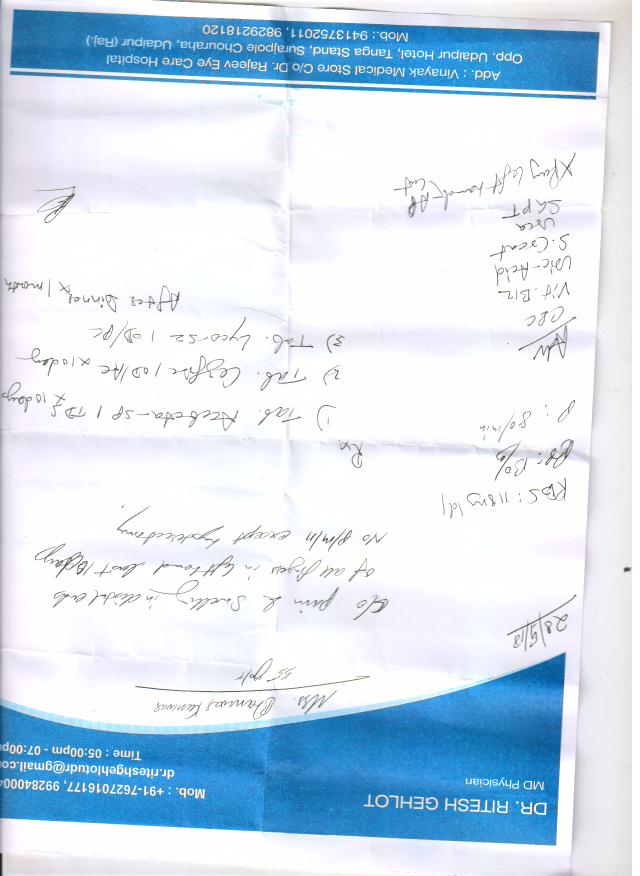 DR. RITESH GEHLOT
MD Physician
Mob. : +91-7627016177, 992840004
dr.riteshgehlotudr@gmail.co
Time : 05:00pm - 07:00p
Mrs. Kanwar
55 yr
28/5/18
c/o pain & swelling in distal ends
of all fingers in left hand last days
No P/M/H except hysterectomy.
RBS : 118 mg/dl
BP : 130/
P : 80/min
Rx
1) Tab. -SP 1 x 10 days
2) Tab. 1 OD/AC x 10 day
3) Tab. Lyco-sz 1 OD/PC
After Dinner x 1 month
Adv
CBC
Vit. B12
Uric-Acid
S. Creat
Urea
SGPT
X Ray left hand - AP
Lat
Add : Vinayak Medical Store C/o Dr. Rajeev Eye Care Hospital
Opp. Udaipur Hotel, Tanga Stand, Surajpole Chouraha, Udaipur (Raj.)
Mob.: 9413752011, 9829218120